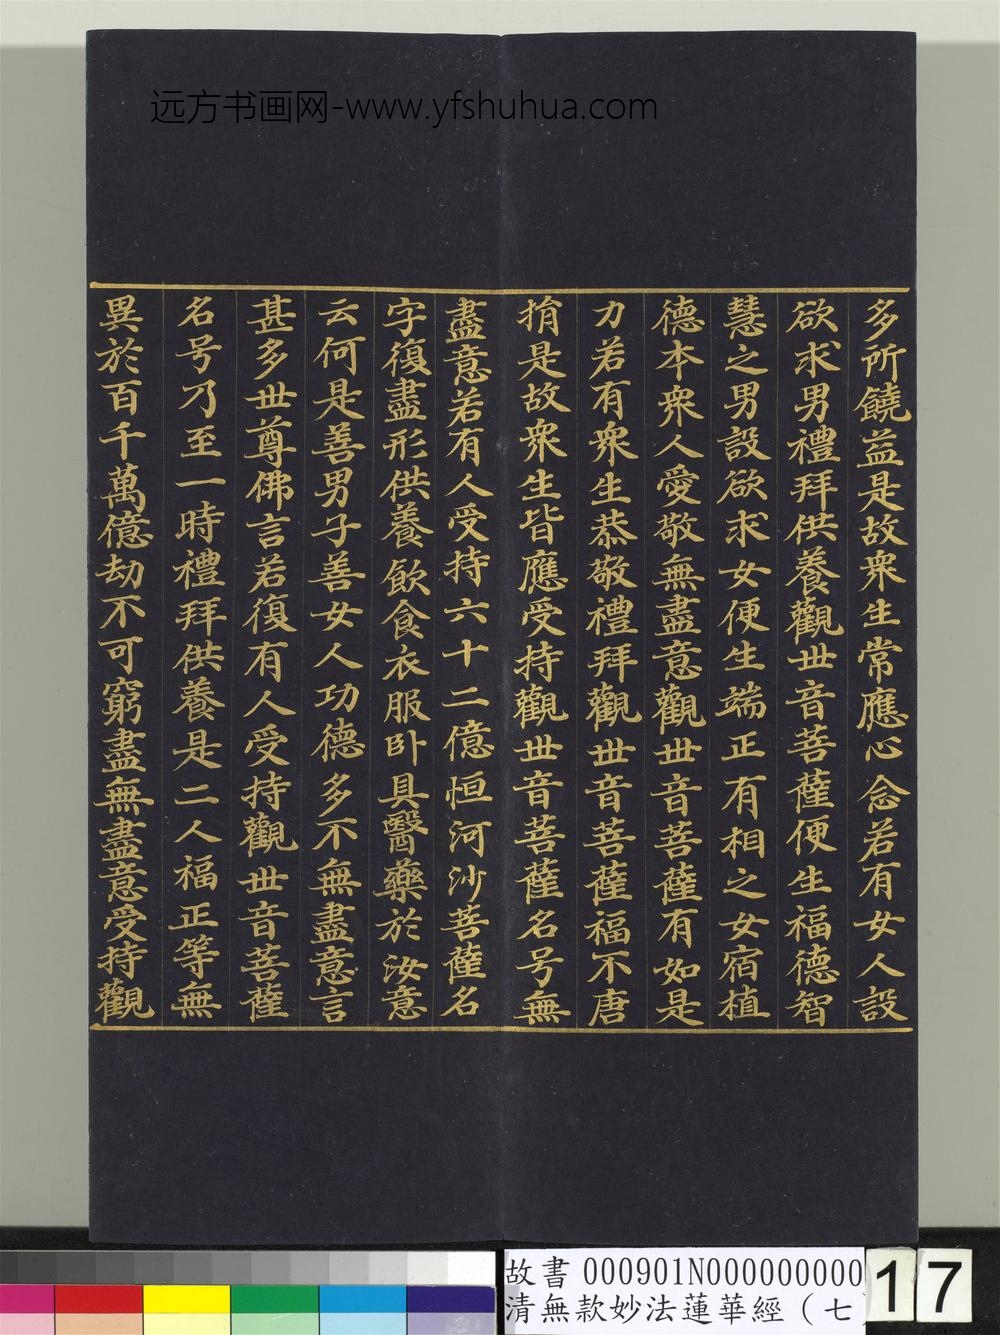 远方书画网-www.yfshuhua.com
多所饒益是故衆生常應心念若有女人設
欲求男禮拜供養觀世音菩薩便生福德智
慧之男設欲求女便生端正有相之女宿植
德本衆人愛敬無盡意觀世音菩薩有如是
力若有衆生恭敬禮拜觀世音菩薩福不唐
捐是故衆生皆應受持觀世音菩薩名号無
盡意若有人受持六十二億恒河沙菩薩名
字復盡形供養飲食衣服卧具醫藥於汝意
云何是善男子善女人功德多不無盡意言
甚多世尊佛言若復有人受持觀世音菩薩
名号乃至一時禮拜供養是二人福正等無
異於百千萬億劫不可窮盡無盡意受持觀
故書 000901N000000000
清無款妙法蓮華經（七
17